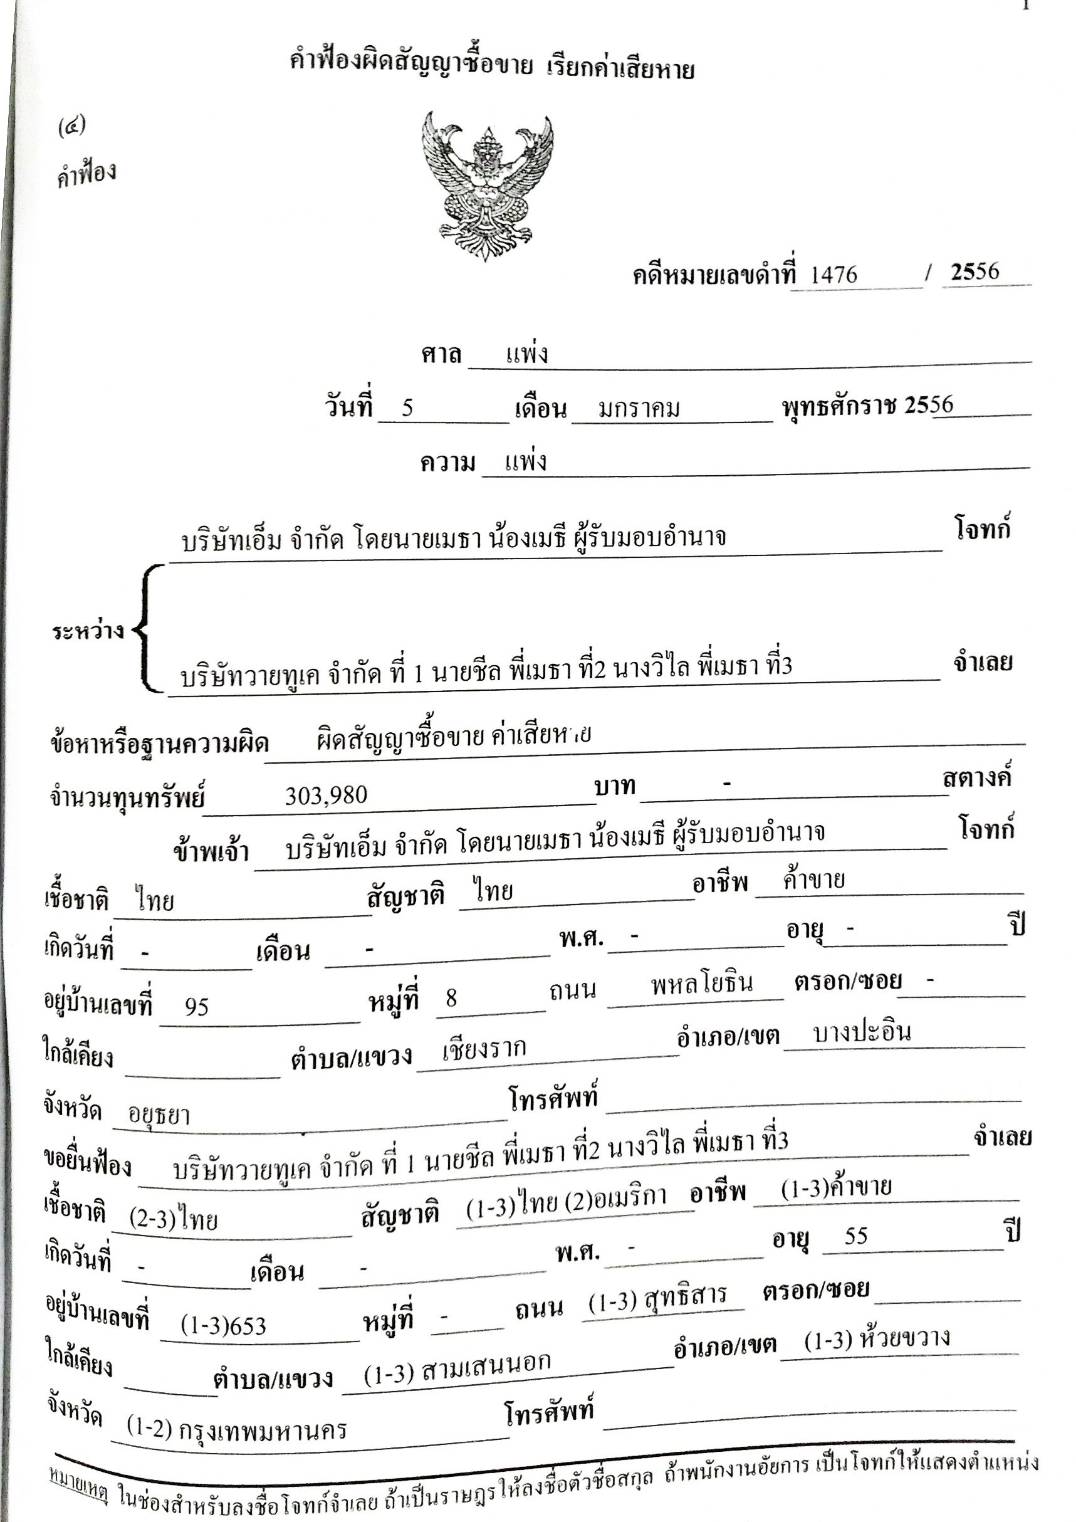 1
คำฟ้องผิดสัญญาซื้อขาย เรียกค่าเสียหาย
(๔)
คำฟ้อง
คดีหมายเลขดำที่ 1476 / 2556
ศาล แพ่ง
วันที่ 5 เดือน มกราคม พุทธศักราช 2556
ความ แพ่ง
บริษัทเอ็ม จำกัด โดยนายเมธา น้องเมธี ผู้รับมอบอำนาจ โจทก์
ระหว่าง
บริษัทวายทูเค จำกัด ที่ 1 นายชีล พี่เมธา ที่2 นางวิไล พี่เมธา ที่3 จำเลย
ข้อหาหรือฐานความผิด ผิดสัญญาซื้อขาย ค่าเสียหาย
จำนวนทุนทรัพย์ 303,980 บาท - สตางค์
ข้าพเจ้า บริษัทเอ็ม จำกัด โดยนายเมธา น้องเมธี ผู้รับมอบอำนาจ โจทก์
เชื้อชาติ ไทย สัญชาติ ไทย อาชีพ ค้าขาย
เกิดวันที่ - เดือน - พ.ศ. - อายุ - ปี
อยู่บ้านเลขที่ 95 หมู่ที่ 8 ถนน พหลโยธิน ตรอก/ซอย -
ใกล้เคียง ตำบล/แขวง เชียงราก อำเภอ/เขต บางปะอิน
จังหวัด อยุธยา โทรศัพท์
ขอยื่นฟ้อง บริษัทวายทูเค จำกัด ที่ 1 นายชีล พี่เมธา ที่2 นางวิไล พี่เมธา ที่3 จำเลย
เชื้อชาติ (2-3)ไทย สัญชาติ (1-3)ไทย (2)อเมริกา อาชีพ (1-3)ค้าขาย
เกิดวันที่ - เดือน - พ.ศ. - อายุ 55 ปี
อยู่บ้านเลขที่ (1-3)653 หมู่ที่ - ถนน (1-3) สุทธิสาร ตรอก/ซอย
ใกล้เคียง ตำบล/แขวง (1-3) สามเสนนอก อำเภอ/เขต (1-3) ห้วยขวาง
จังหวัด (1-2) กรุงเทพมหานคร โทรศัพท์
หมายเหตุ ในช่องสำหรับลงชื่อโจทก์จำเลย ถ้าเป็นราษฎรให้ลงชื่อตัวชื่อสกุล ถ้าพนักงานอัยการ เป็นโจทก์ให้แสดงตำแหน่ง